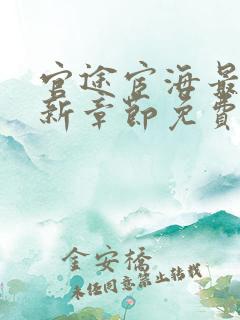 官途宦海最
新章節免費
金安橋
未经同意禁止转载